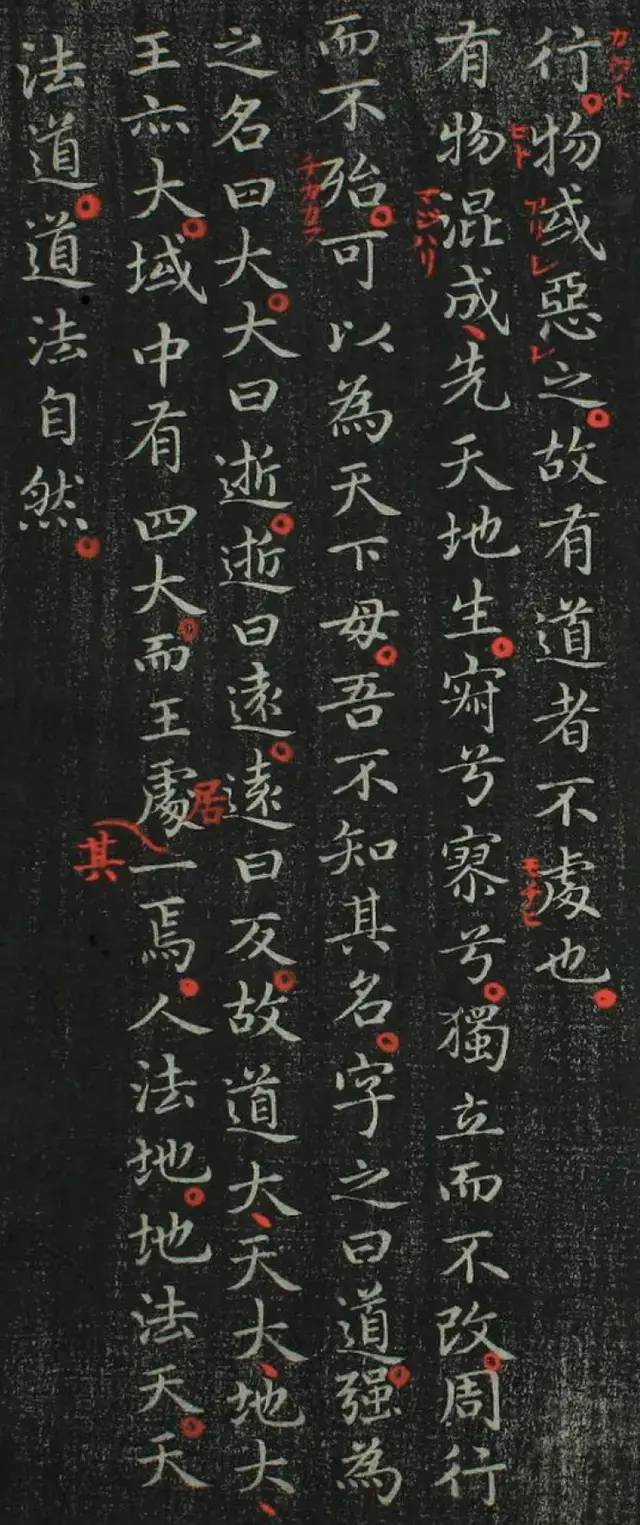 行。物或惡之。故有道者不處也。
ヒト
アリ
レ
レ
有物混成、先天地生。寂兮寥兮。獨立而不改。周行
マジハリ
而不殆。可以為天下母。吾不知其名。字之曰道。强為
之名曰大。大曰逝。逝曰遠。遠曰反。故道大、天大、地大、
王亦大。域中有四大。而王處一焉。人法地。地法天。天
居
其
法道。道法自然。